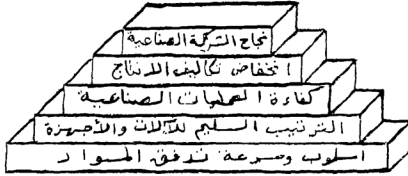 نجاح الشركة الصناعية
انخفاض تكاليف الانتاج
كفاءة العمليات الصناعية
الترتيب السليم للآلات والأجهزة
اسلوب وسرعة تدفق المواد